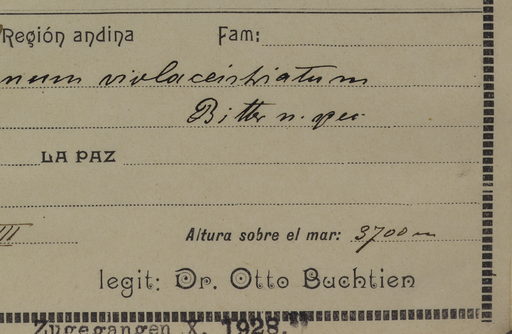 Región andina Fam:
num violaceistriatum
Bitter n. spec.
LA PAZ
III Altura sobre el mar: 3700 m
legit: Dr. Otto Buchtien
Zugegangen X. 1928.